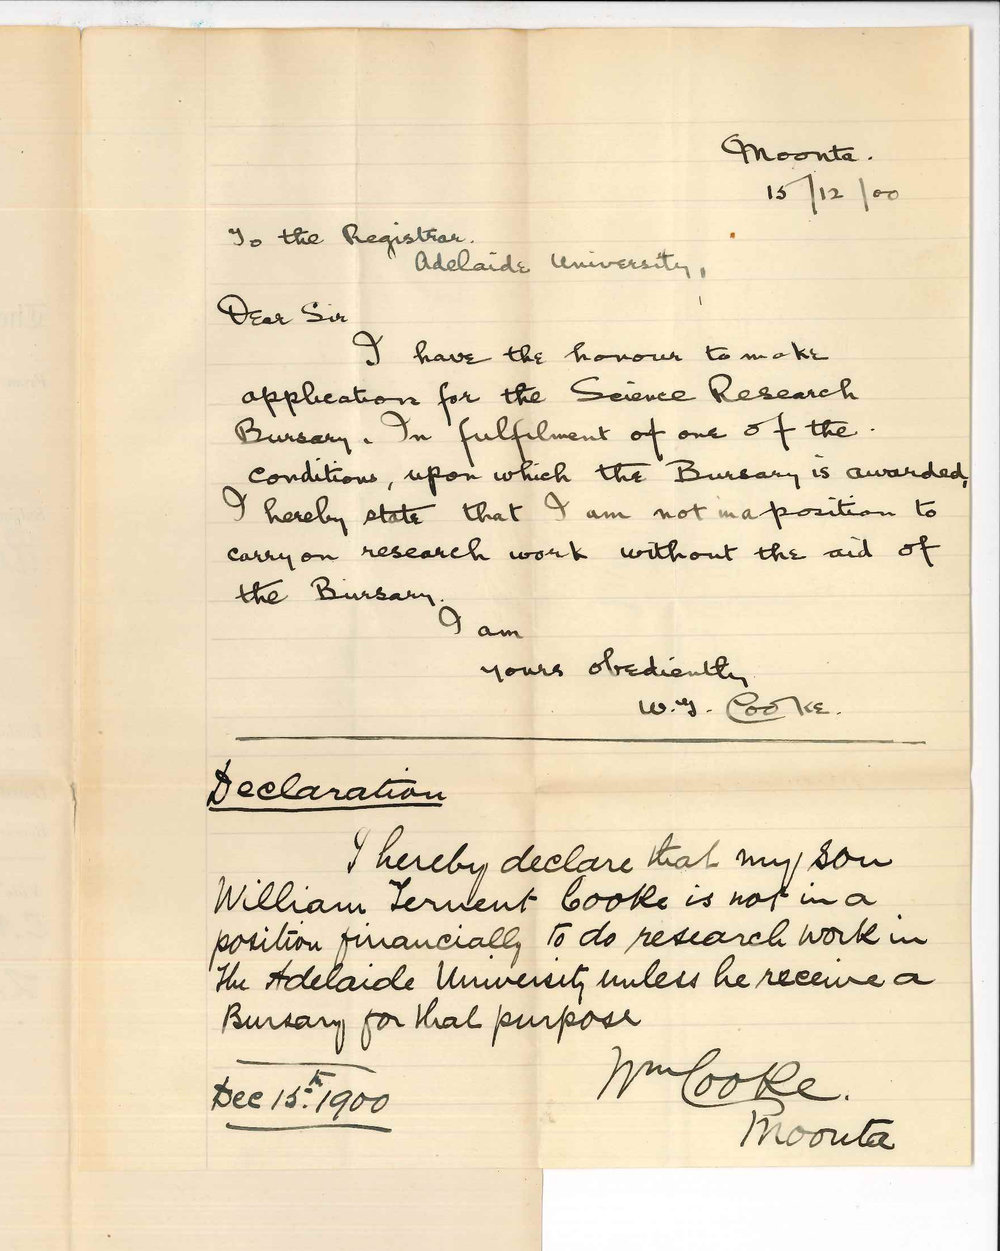 Moonta.
15/12/00
To the Registrar.
Adelaide University,
Dear Sir
I have the honour to make
application for the Science Research
Bursary. In fulfilment of one of the
conditions, upon which the Bursary is awarded,
I hereby state that I am not in a position to
carry on research work without the aid of
the Bursary.
I am
yours obediently
W. T. Cooke.
Declaration
I hereby declare that my son
William Ternent Cooke is not in a
position financially to do research work in
the Adelaide University unless he receive a
Bursary for that purpose
Wm Cooke.
Dec 15th. 1900
Moonta